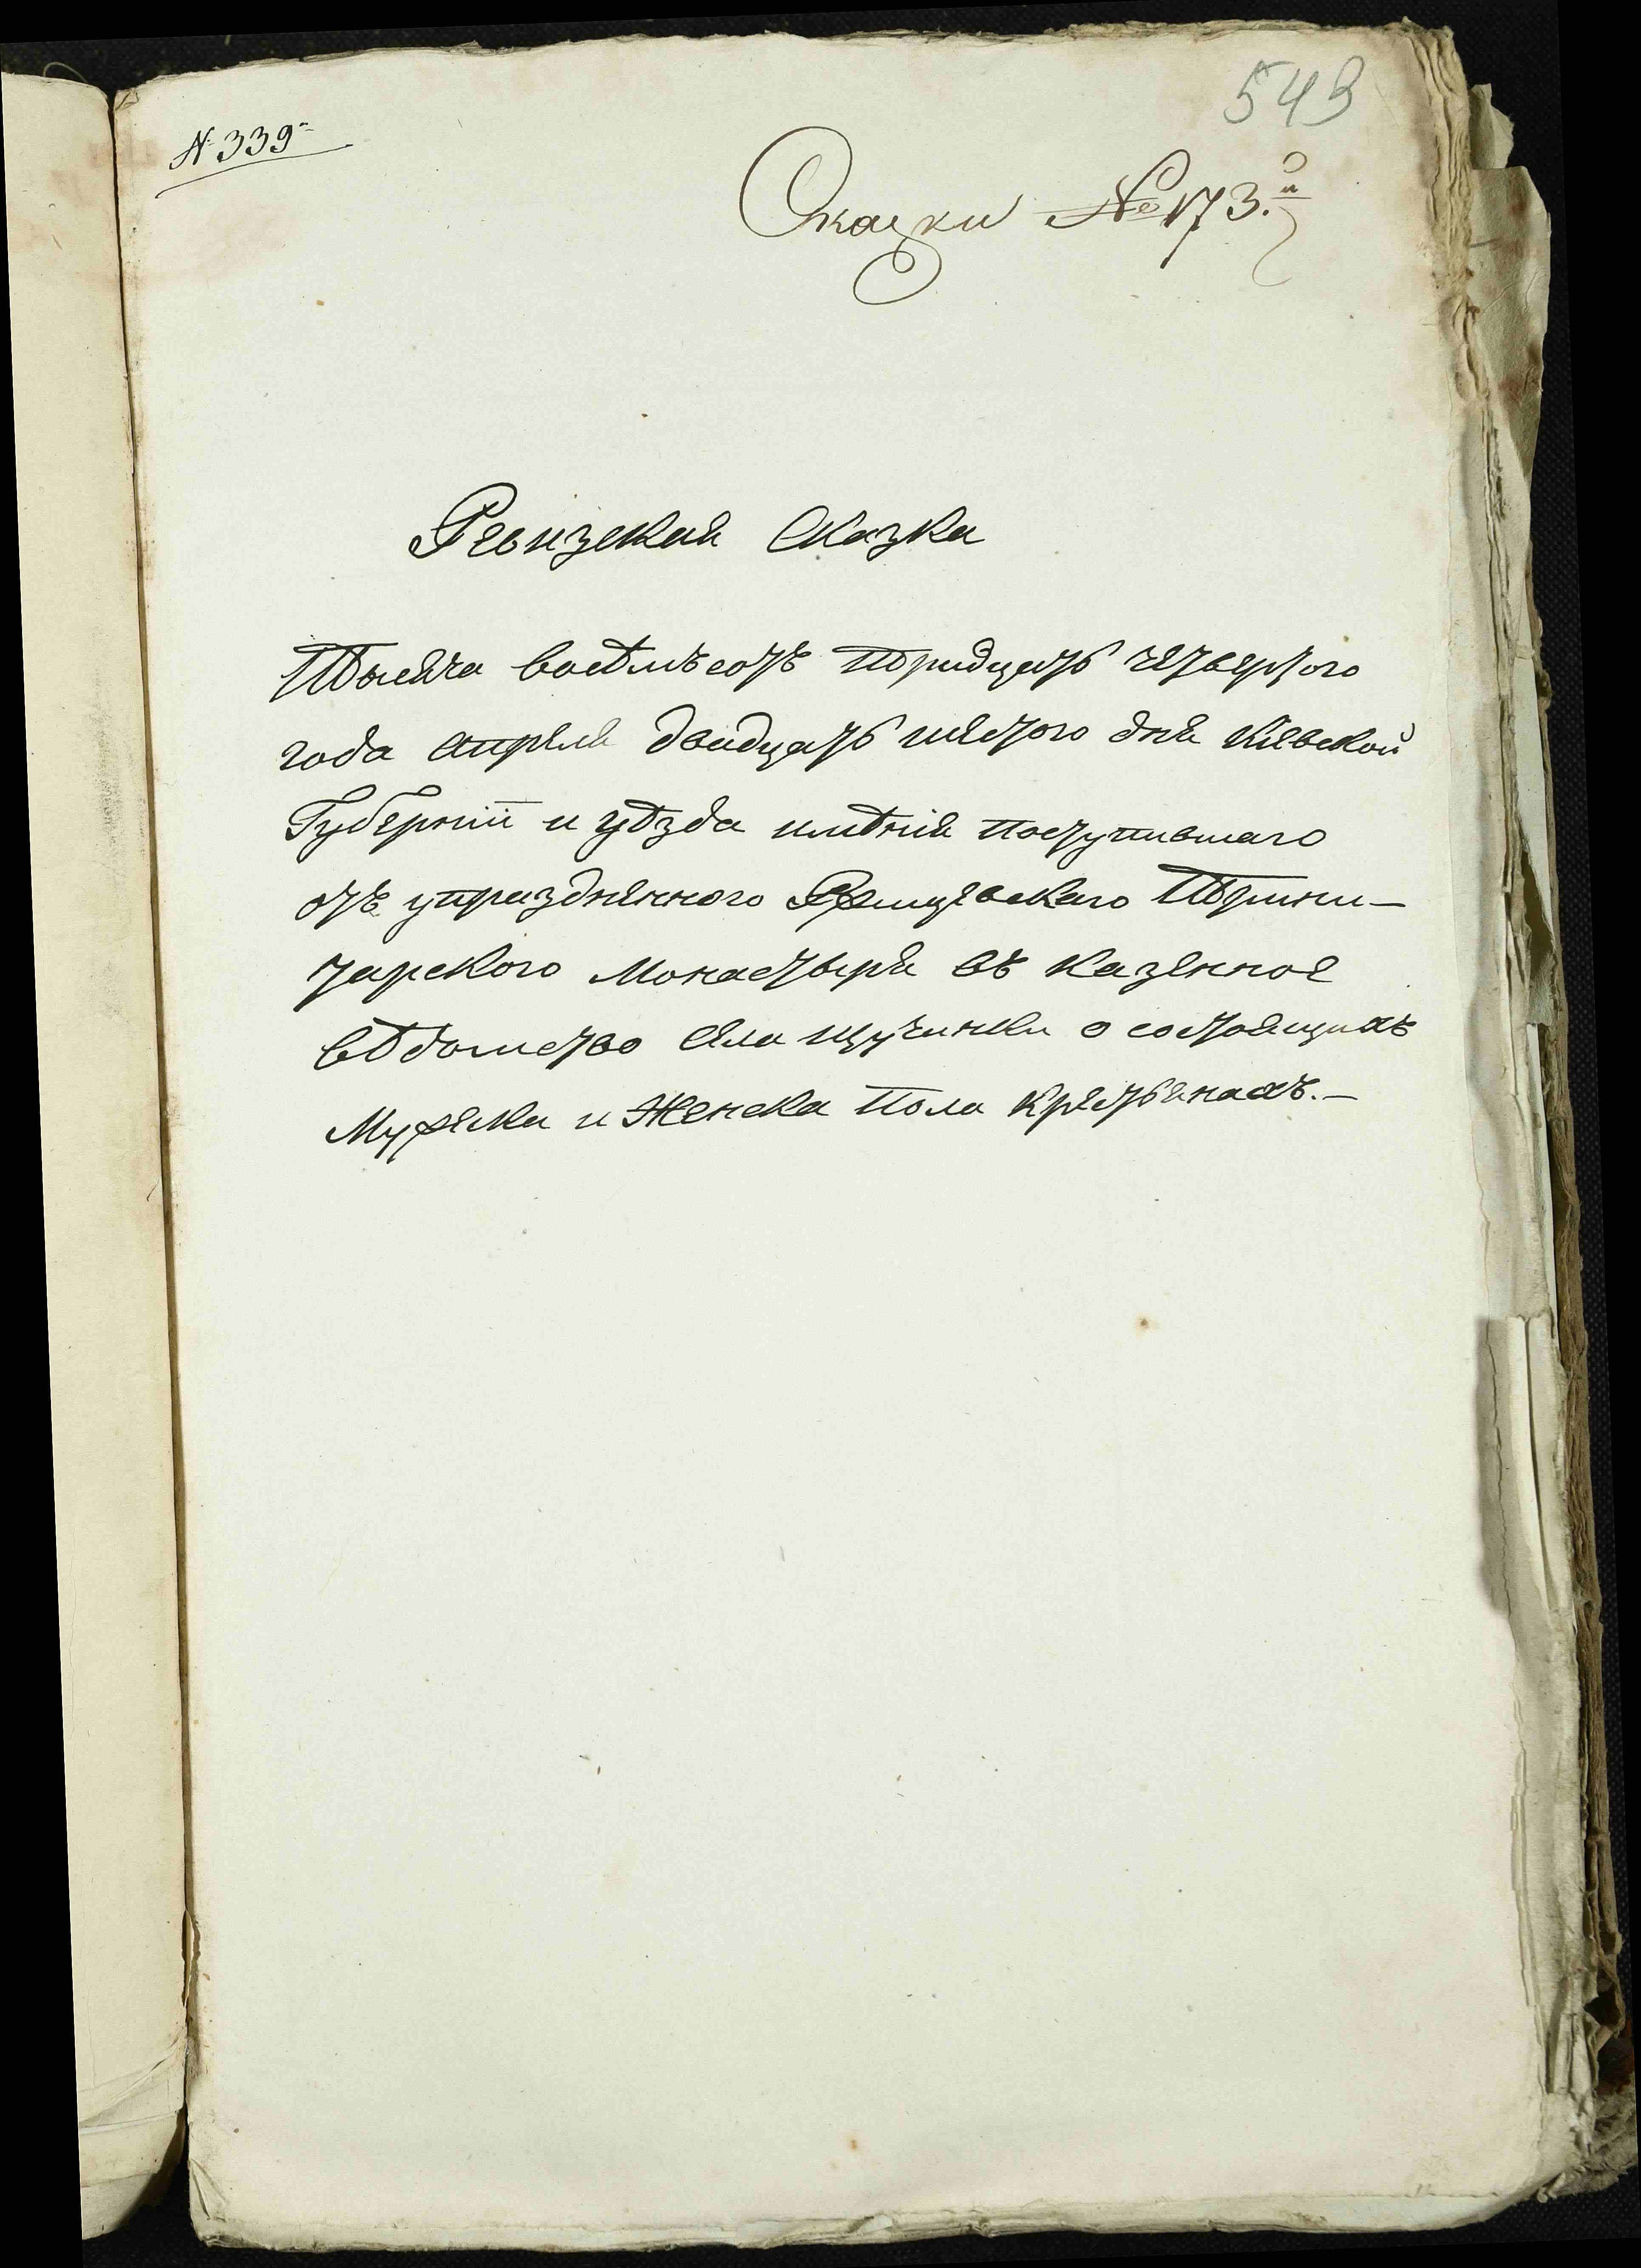 543
№ 339
Сказки № 173.й
Ревизская Сказка
Тысяча восѣмъсотъ тридцать четвертого
года апреля двадцать шестого дня Киевской
Губернии и уѣзда имѣния поступившаго
отъ упраздненного Ржищевского Трини-
тарского Монастыря въ казенное
вѣдомство села щучинки о состоящихъ
Мужеска и Женска Пола крестьянахъ.—